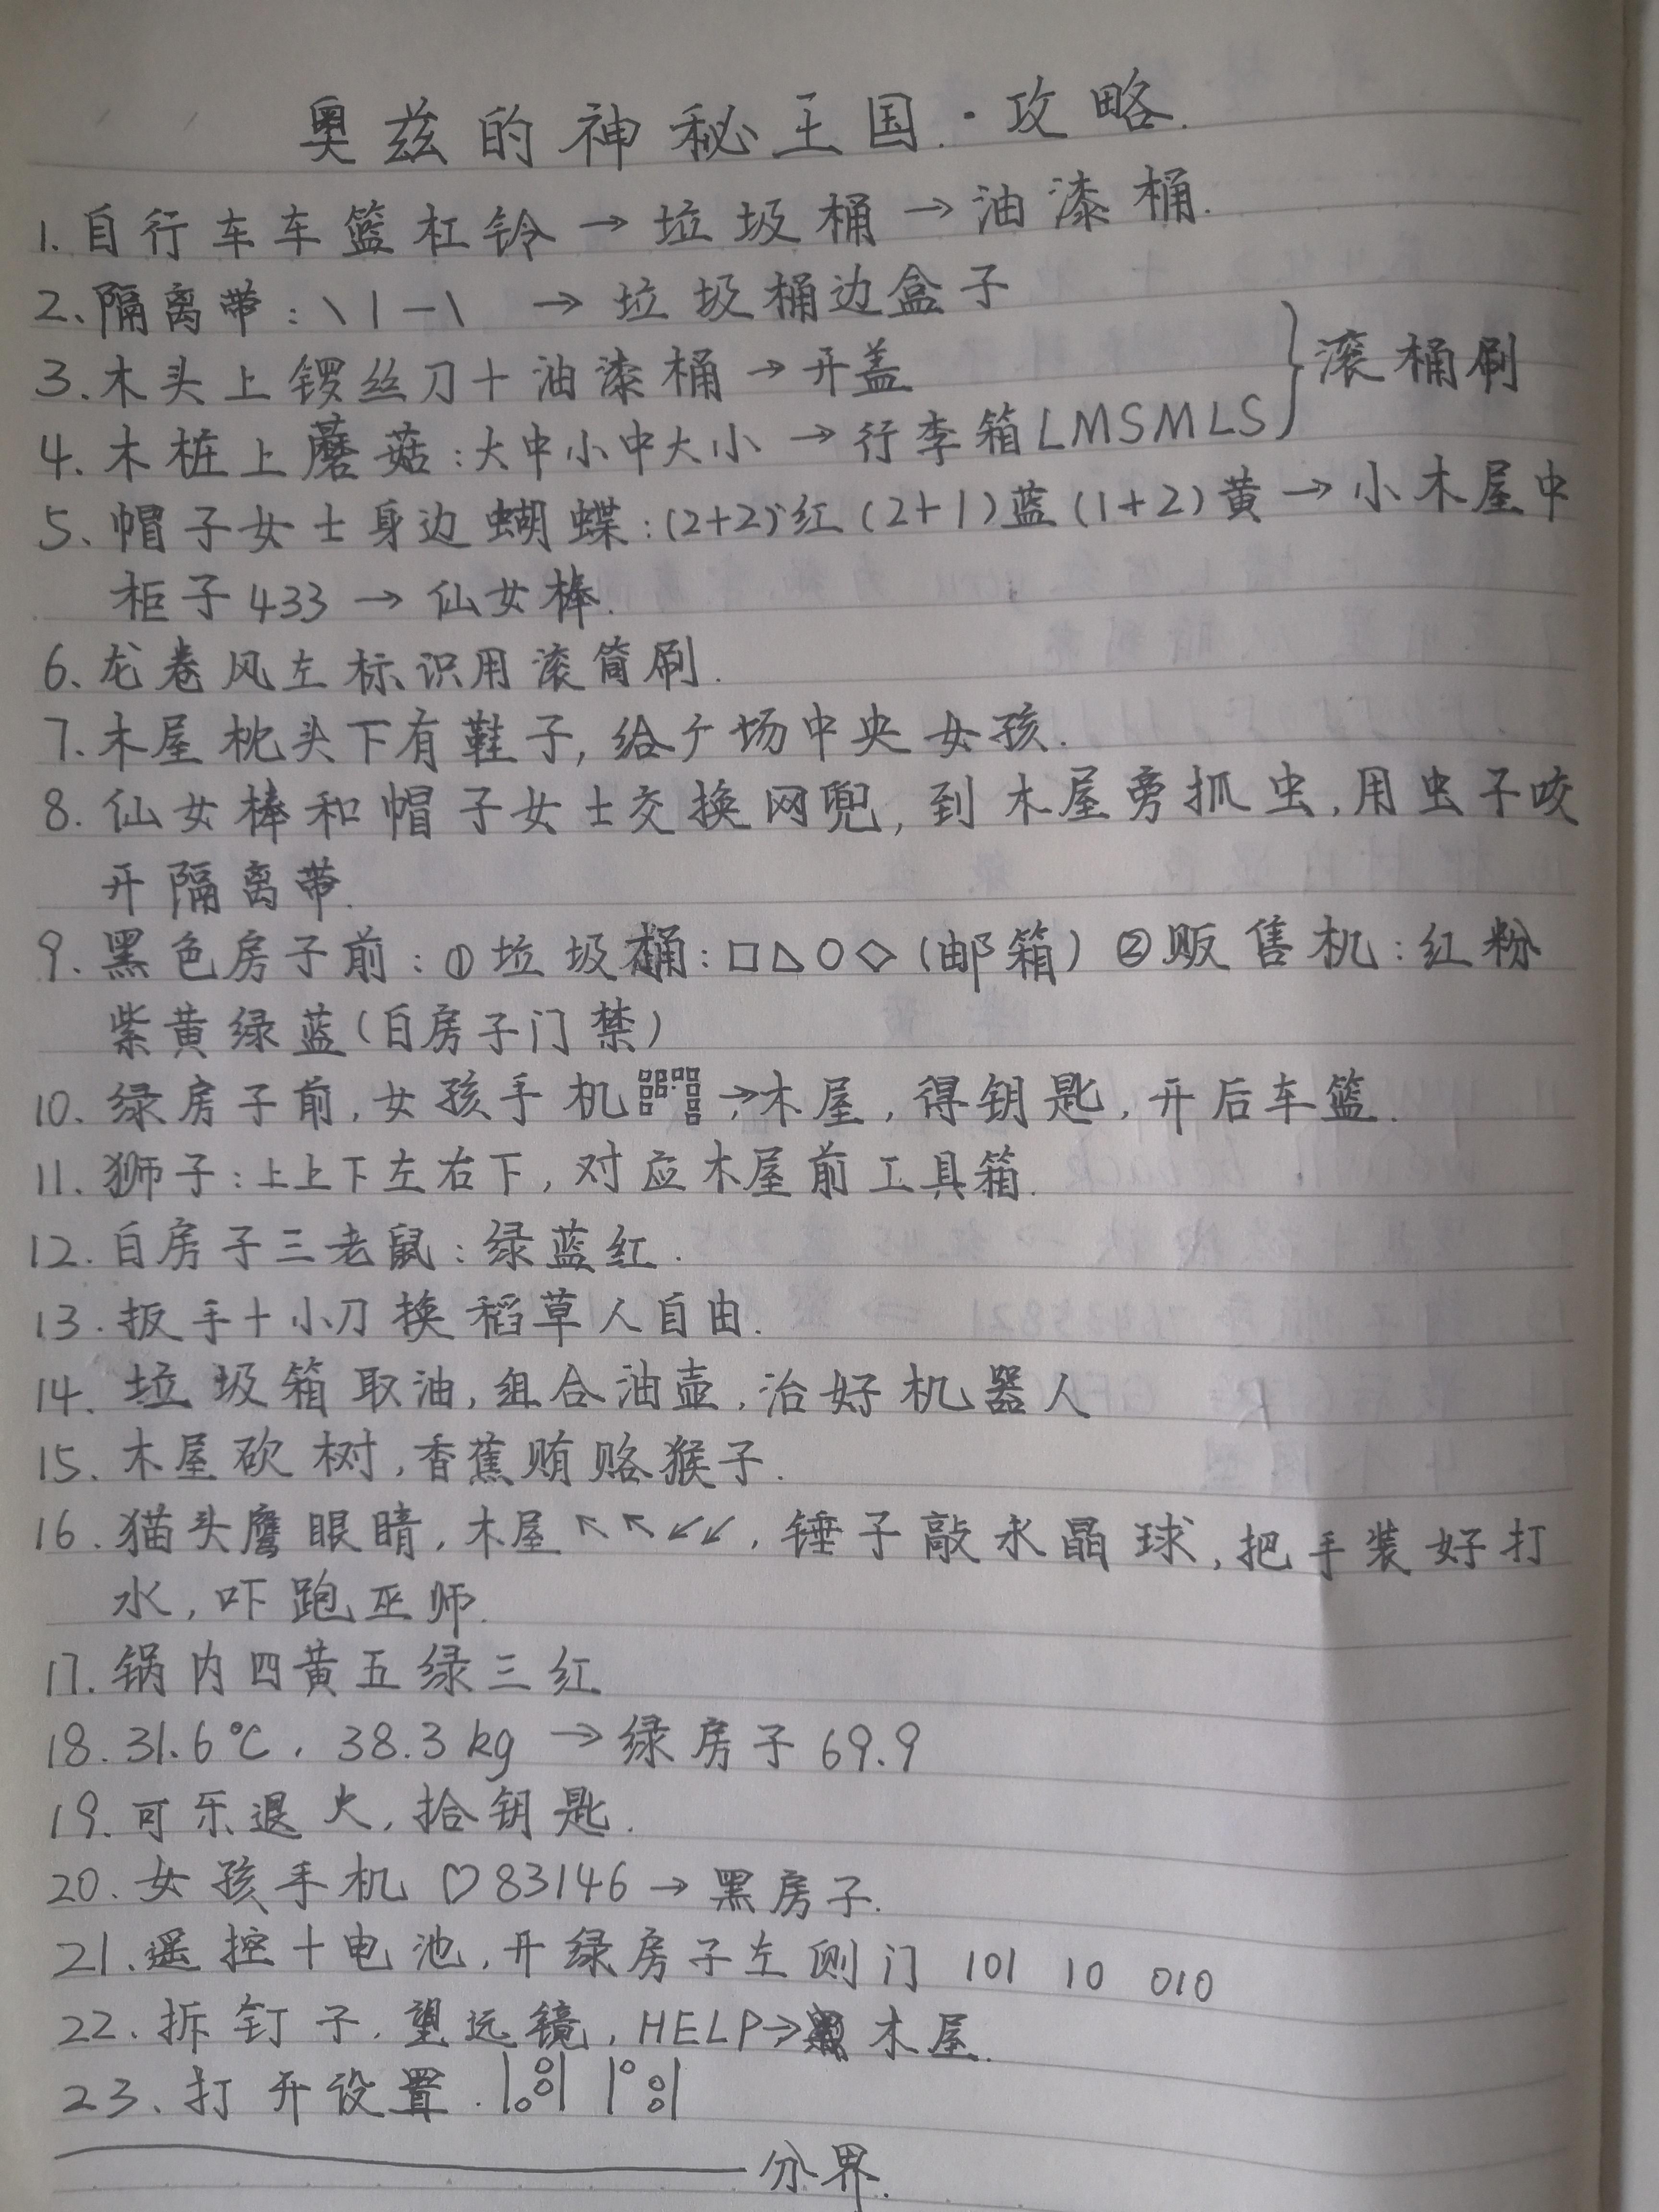 奥兹的神秘王国·攻略.
1.自行车车篮杠铃→垃圾桶→油漆桶.
2、隔离带:\ | — \ → 垃圾桶边盒子
3.木头上锣丝刀+油漆桶→开盖
} 滚桶刷
4.木桩上蘑菇:大中小中大小→行李箱LMSMLS
5、帽子女士身边蝴蝶:(2+2)红(2+1)蓝(1+2)黄→小木屋中
柜子433→仙女棒.
6、龙卷风左标识用滚筒刷.
7.木屋枕头下有鞋子,给广场中央女孩.
8.仙女棒和帽子女士交换网兜,到木屋旁抓虫,用虫子咬
开隔离带.
9.黑色房子前:①垃圾桶:□△○◇(邮箱)②贩售机:红粉
紫黄绿蓝(白房子门禁)
10.绿房子前,女孩手机→木屋,得钥匙,开后车篮.
11.狮子:上上下左右下,对应木屋前工具箱.
12.白房子三老鼠:绿蓝红.
13.扳手+小刀换稻草人自由.
14.垃圾箱取油,组合油壶,治好机器人
15.木屋砍树,香蕉贿赂猴子.
16.猫头鹰眼睛,木屋↖↖↙↙,锤子敲水晶球,把手装好打
水,吓跑巫师.
17.锅内四黄五绿三红
18.31.6℃,38.3kg→绿房子69.9
19.可乐退火,拾钥匙.
20.女孩手机♡83146→黑房子.
21.遥控+电池,开绿房子左侧门 101 10 010
22.拆钉子.望远镜,HELP→木屋.
23、打开设置.
分界.